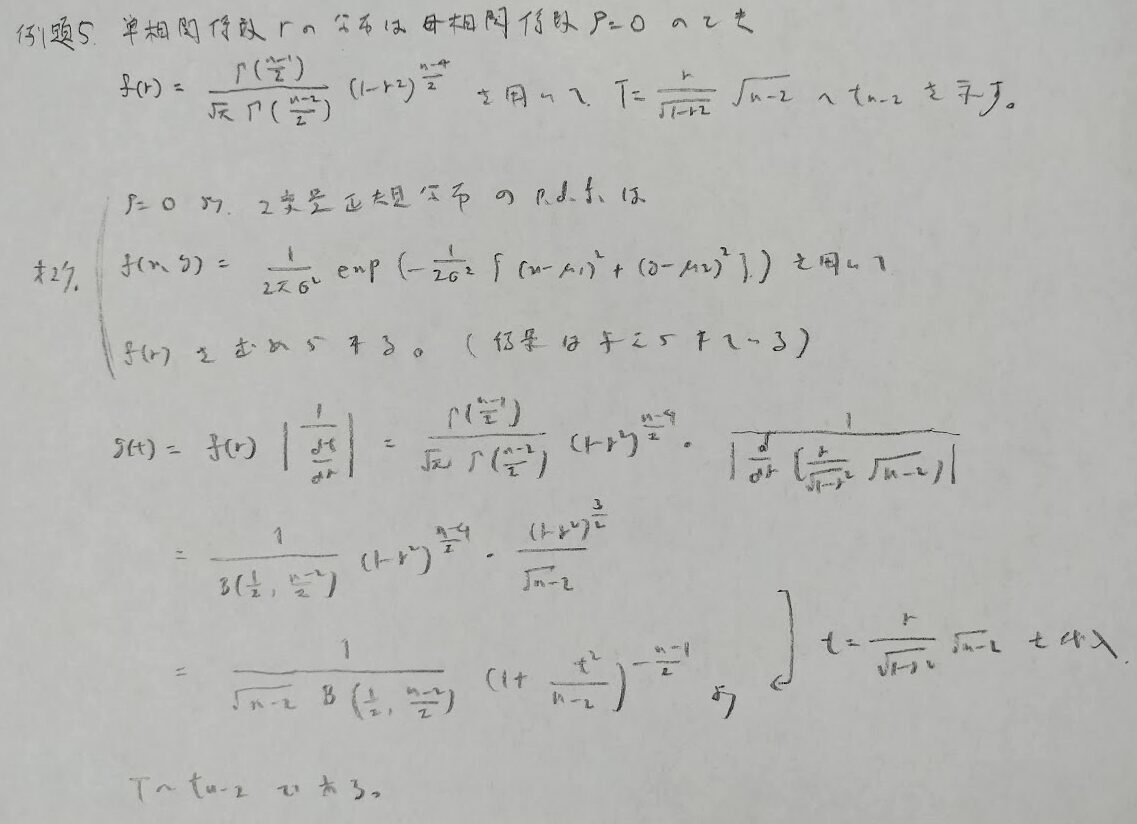 例題5. 単相関係数 r の分布は母相関係数 ρ=0 のとき
f(r) = Γ((n-1)/2) / (√π Γ((n-2)/2)) (1-r²)^((n-4)/2) を用いて T = r/√(1-r²) √(n-2) ~ t_{n-2} を示す。
ρ=0 より. 2変量正規分布の p.d.f. は
f(x, y) = 1/(2πσ²) exp(-1/(2σ²) {(x-μ₁)²+(y-μ₂)²}) を用いて
f(r) を求められる。(結果は与えられている)
g(t) = f(r) |1/(dt/dr)| = Γ((n-1)/2) / (√π Γ((n-2)/2)) (1-r²)^((n-4)/2) · 1/|d/dr (r/√(1-r²) √(n-2))|
= 1/B(1/2, (n-2)/2) (1-r²)^((n-4)/2) · (1-r²)^(3/2)/√(n-2)
= 1/(√(n-2) B(1/2, (n-2)/2)) (1+ t²/(n-2))^(-(n-1)/2) より
t = r/√(1-r²) √(n-2) を代入.
T ~ t_{n-2} である。